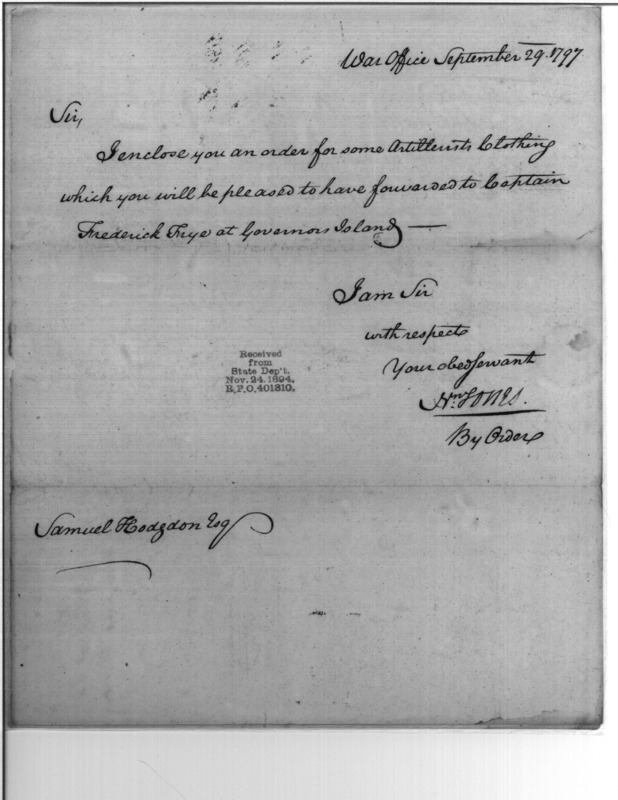 War Office September 29. 1797
Sir,
I enclose you an order for some Artillerists Clothing
which you will be pleased to have forwarded to Captain
Frederick Frye at Governors Island
I am Sir
with respect
Your obed servant
Wm Jones.
By Order
Received
from
State Dep't.
Nov. 24. 1894.
R.P.O. 401810.
Samuel Hodgdon Esq